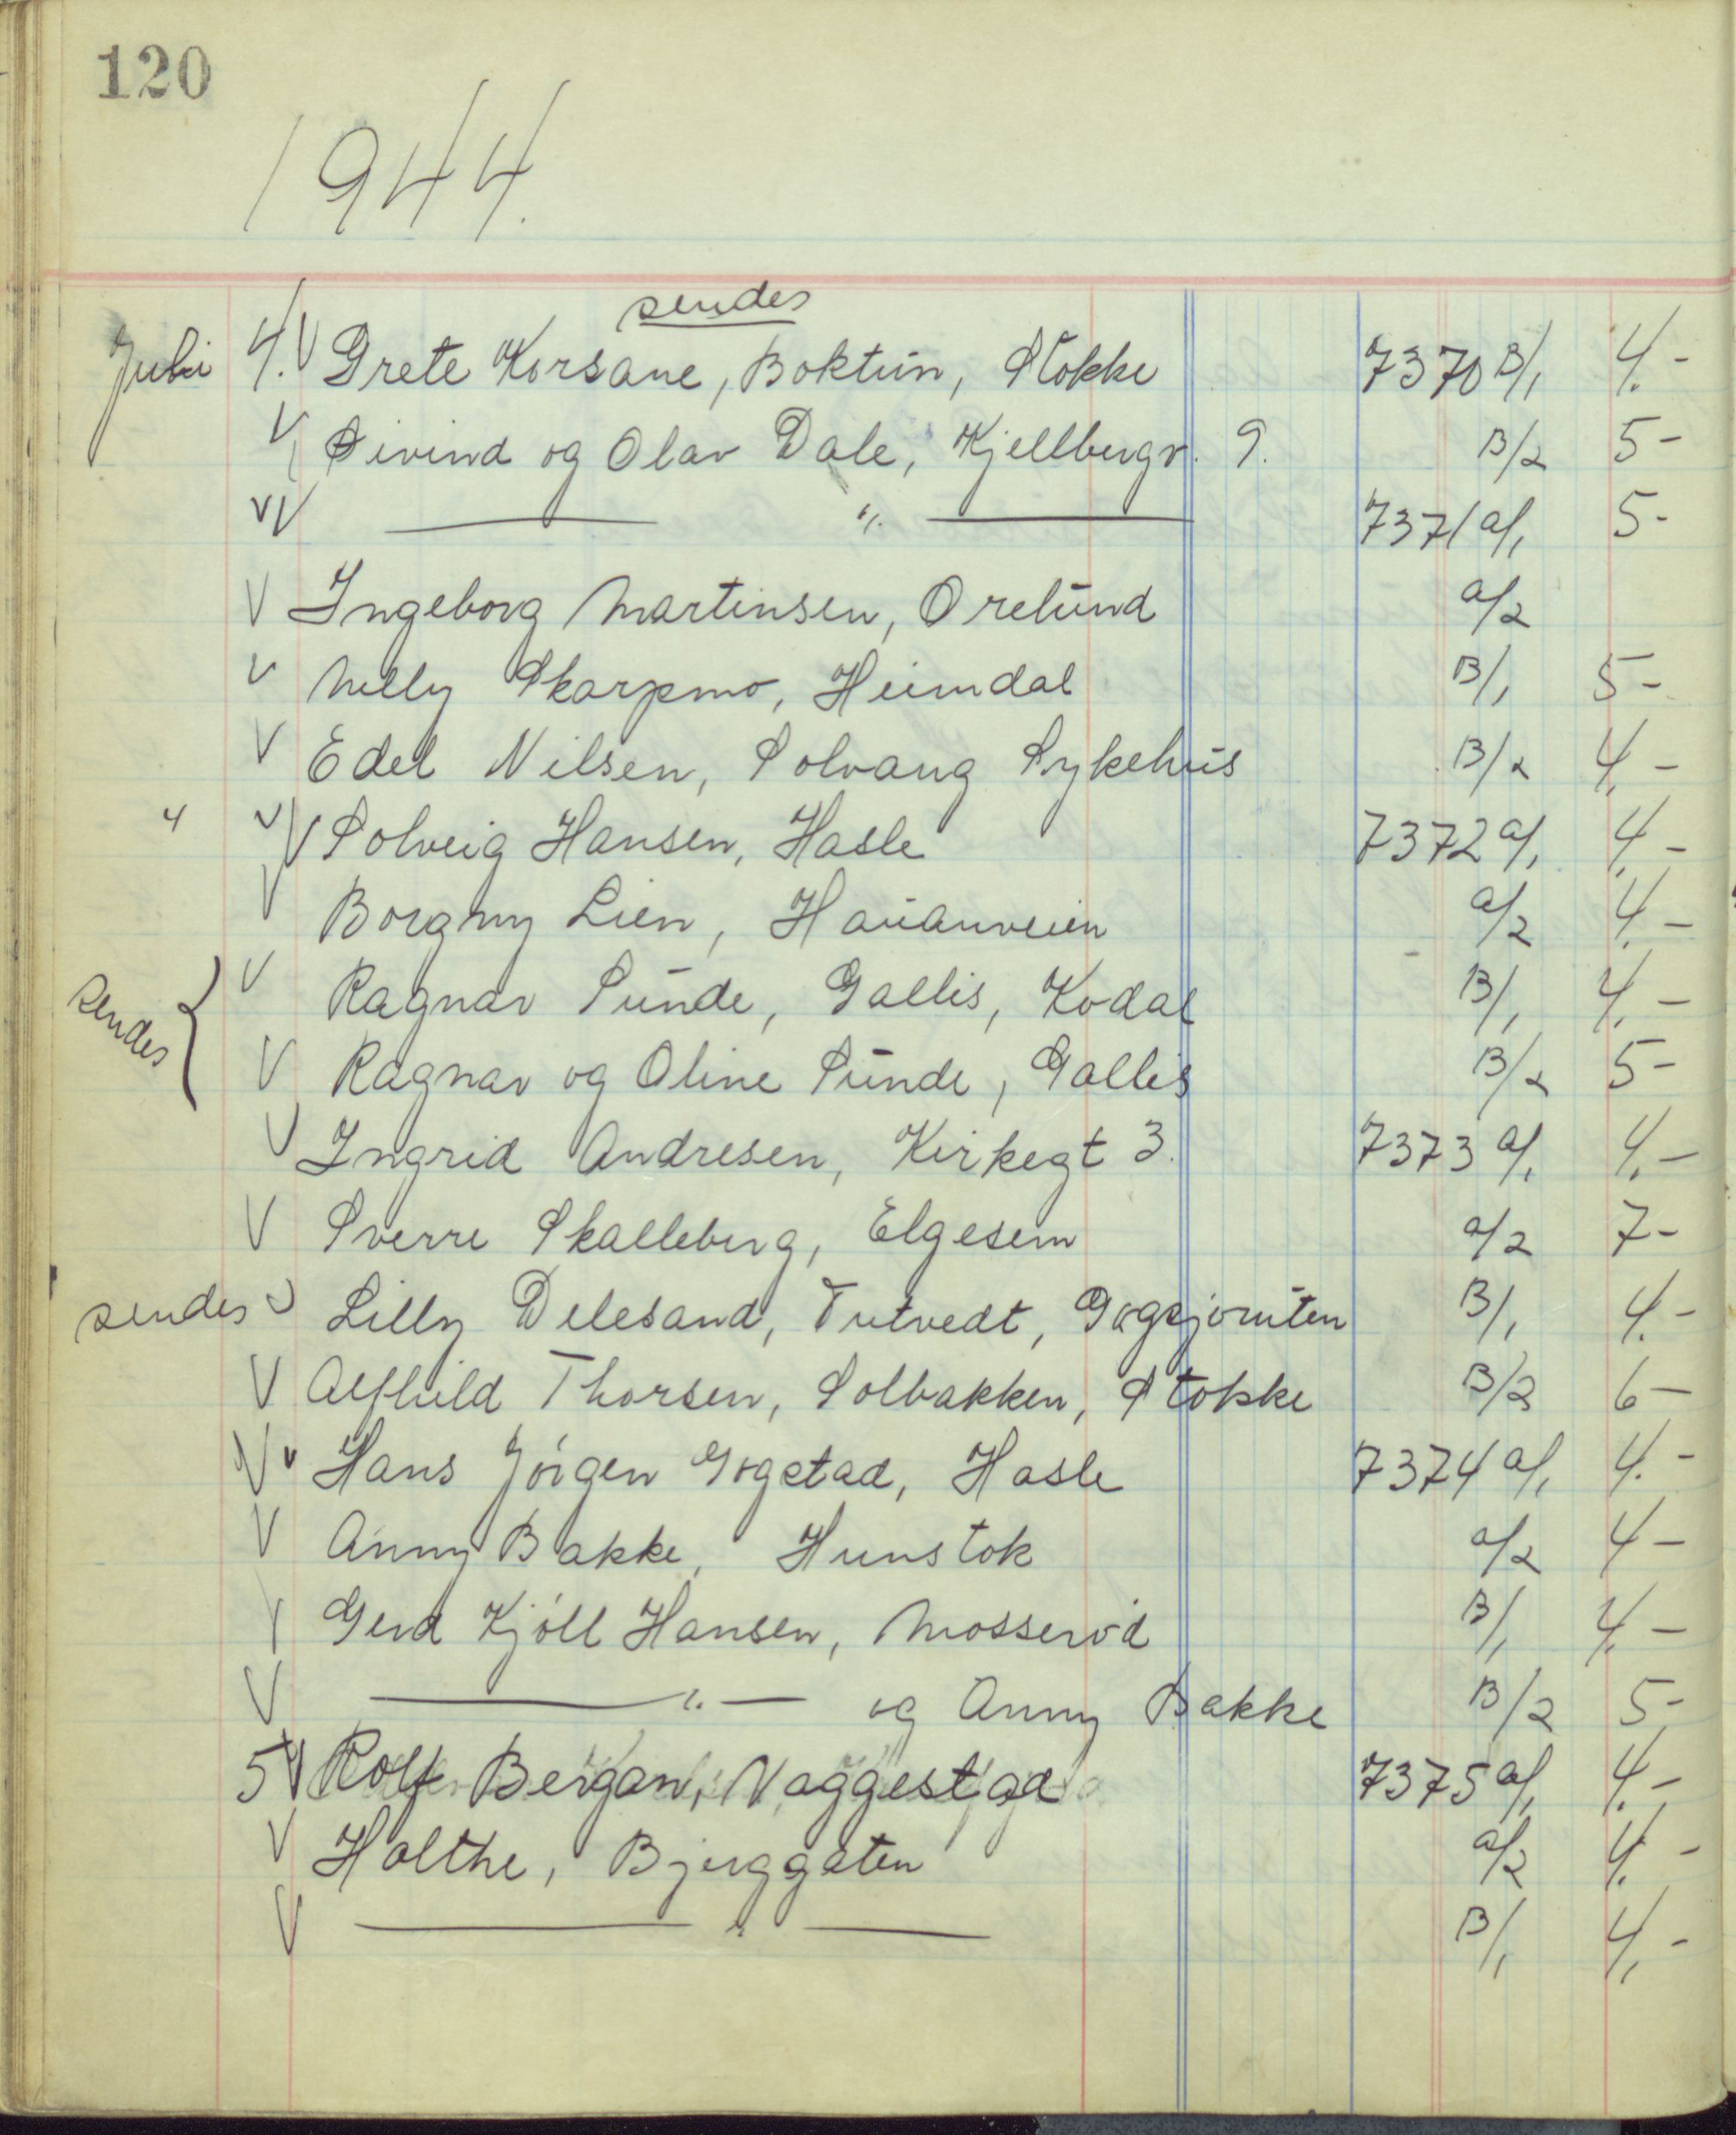 120
1944.
sendes
Juli 4. V Grete Korsane, Boktun, Stokke 7370 B/1 4.-
V Øivind og Olav Dale, Kjellbergv. 9. B/2 5-
VV — " — 7371 a/1 5-
V Ingeborg Martinsen, Orelund a/2
V Nelly Skarpmo, Heimdal B/1 5-
V Edel Nilsen, Solvang Sykehus B/2 4,-
4 VV Solveig Hansen, Hasle 7372 a/1 4,-
V Borgny Lien, Hauanveien a/2 4.-
sendes { V Ragnar Sunde, Gallis, Kodal B/1 4.-
V Ragnar og Oline Sunde, Gallis B/2 5-
V Ingrid Andresen, Kirkegt 3. 7373 a/1 4.-
V Sverre Skalleberg, Elgesem a/2 7-
sendes V Lilly Delesand, Tutvedt, B/1 4.-
V Alfhild Thorsen, Solbakken, Stokke B/2 6-
VV Hans Jörgen Gogstad, Hasle 7374 a/1 4.-
V Anny Bakke, Hunstok a/2 4-
V Gerd Kjöll Hansen, Mosseröd B/1 4.-
V — " — og Anny Bakke B/2 5-
5 V Rolf Bergan, Vaggestad 7375 a/1 4.-
V Holthe, Bjerggaten a/2 4.-
V — " — B/1 4,-